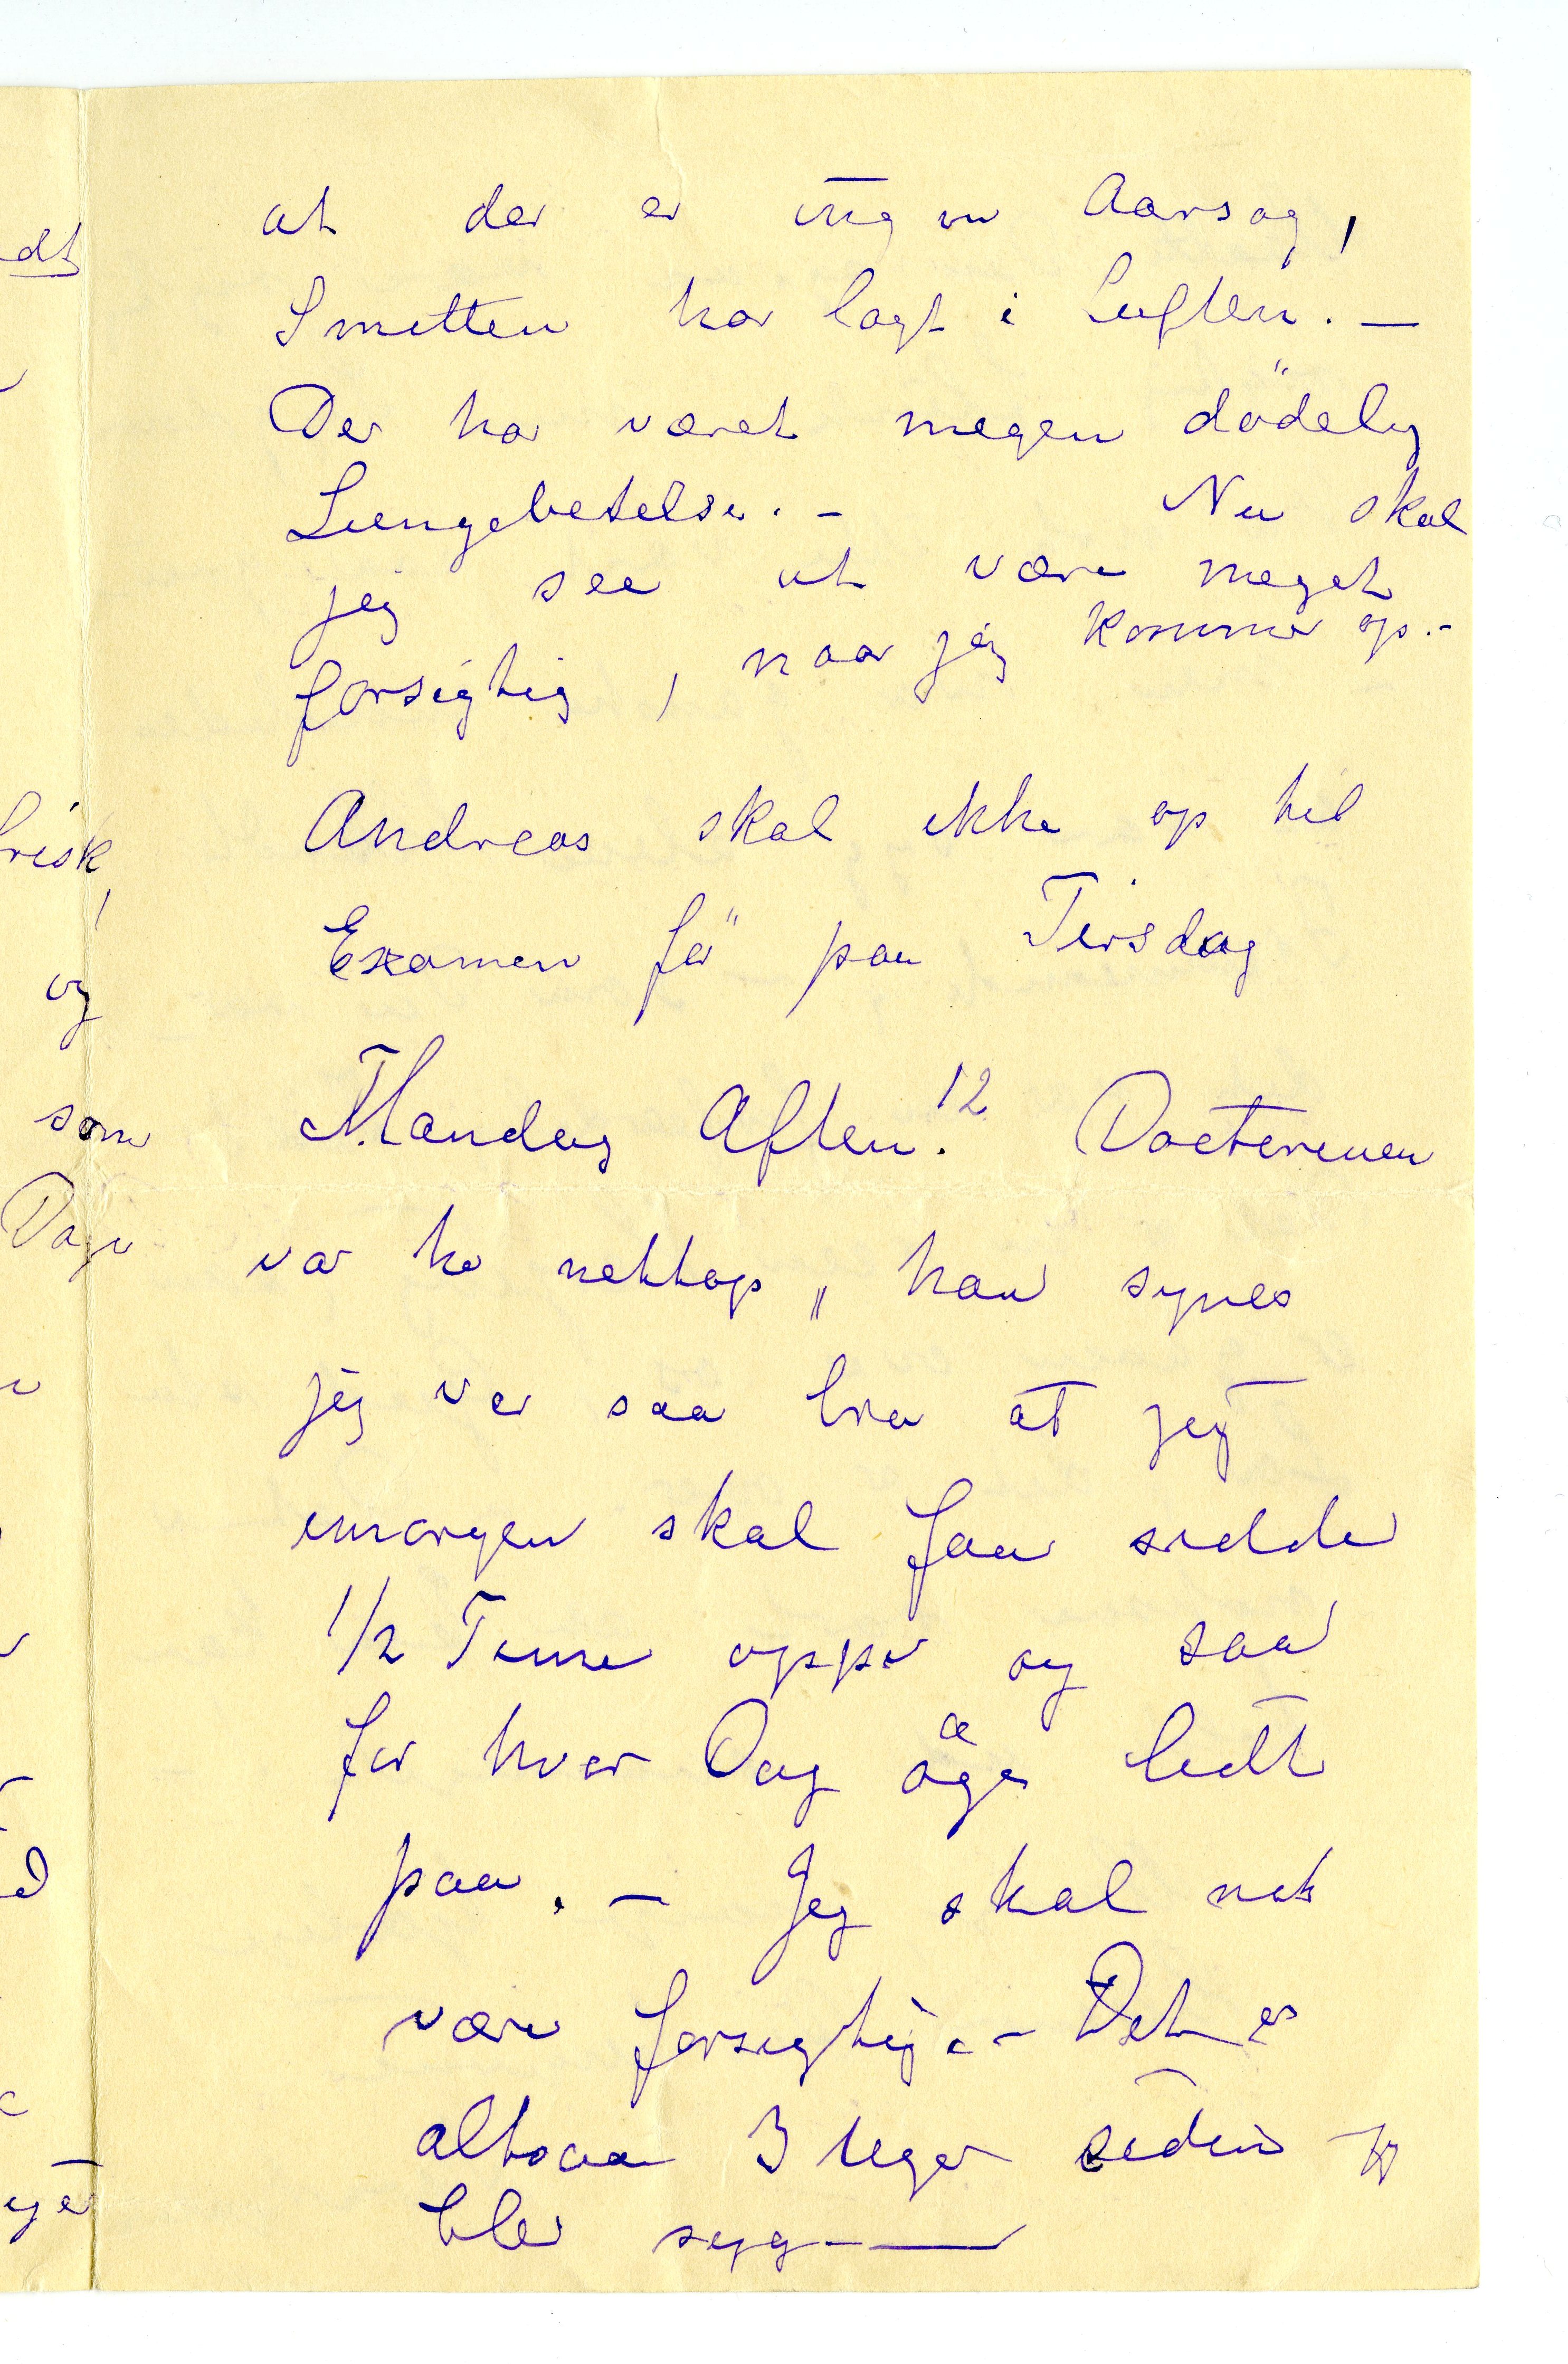 at der er ingen Aarsag,
Smitten har lagt i Luften. —
Der har været megen dödelig
Lungebetelse. – Nu skal
jeg see at være meget
forsigtig, naar jeg kommer op.–
Andreas skal ikke op til
Examen för paa Tirsdag
Mandag Aften. 12 Doctorenen
var her nettop, han synes
jeg var saa bra at jeg
imorgen skal faa sidde
1/2 Time oppe og saa
for hver Dag öge lidt
paa. – Jeg skal nok
være forsigtig. – Det er
altsaa 3 Uger siden jeg
blev syg. —
dt
frisk,
og
som
Dage